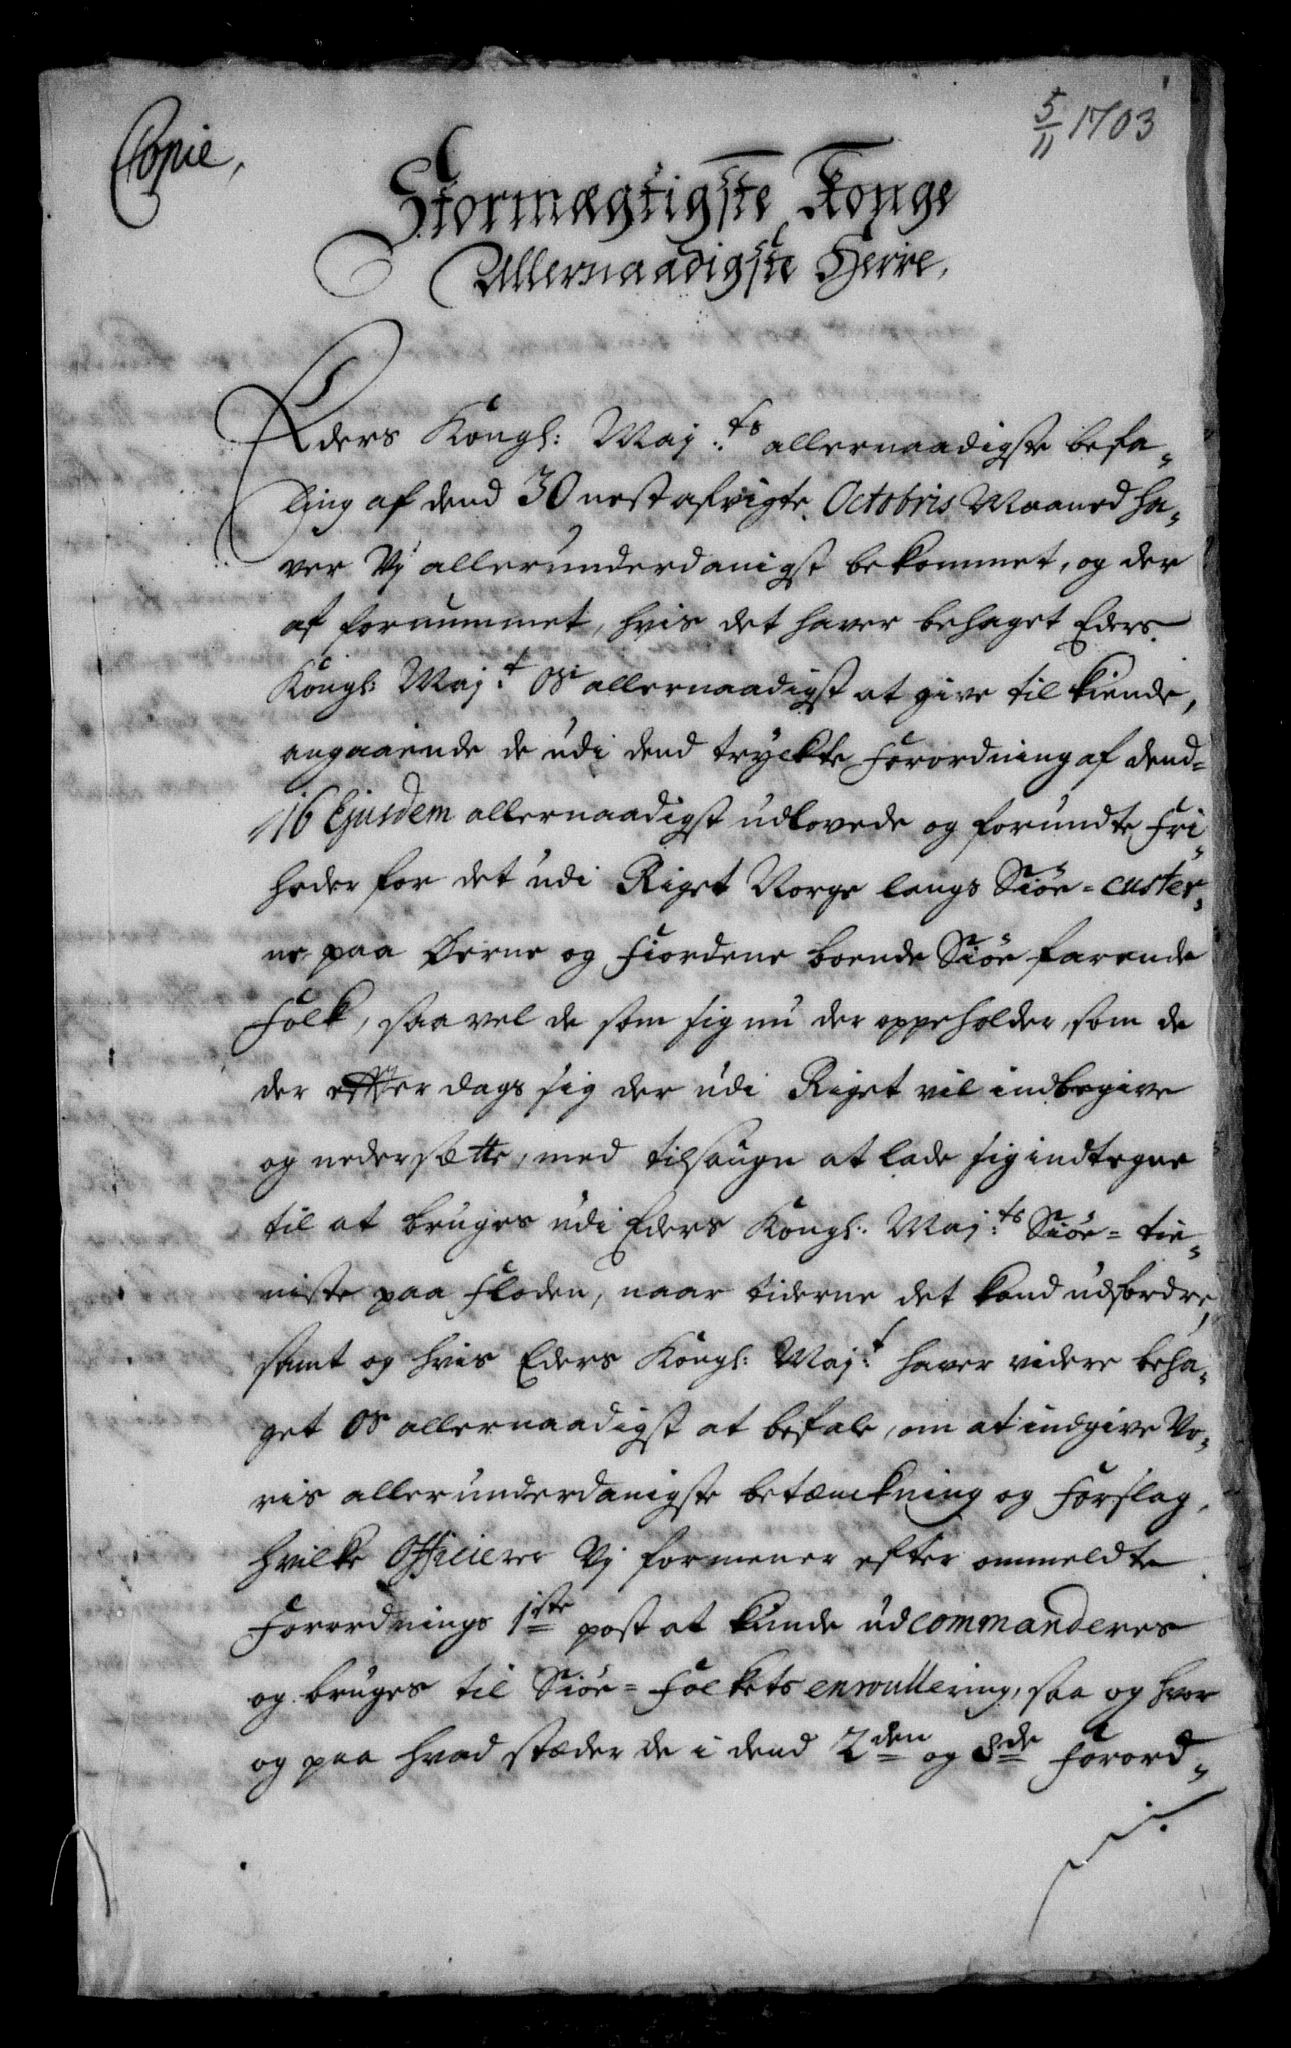 Copie,
5/11 1703
Stormægtigste Konge
Allernaadigste Herre,
Eders Kongl: Maj:ts allernaadigste befa„
ling af dend 30 nest afvigte Octobris Maaned ha„
ver Vj allerunderdanigst bekommet, og der
af fornummet, hvis det haver behaget Eders
Kongl: Maj:t Os allernaadigst at give til kiende,
angaaende de udi dend tryckte Forordning af dend=
16 Ejusdem allernaadigst udlovede og forundte Fri„
heder for det udi Riget Norge langs Siøe=custer„
ne paa Øerne og Fiordene boende Siøe farende
Folk, saavel de som sig nu der oppeholder, som de
der effter dags sig der udi Riget vil indbegive
og nedersætte, med tilsaugn at lade sig indtegne
til at bruges udi Eders Kongl: Maj:ts Siøe=tie„
niste paa Floden, naar tiderne det kand udfordre,
samt og hvis Eders Kongl: Maj:t haver videre beha„
get Os allernaadigst at befale, om at indgive Vo„
ris allerunderdanigste betænckning og Forslag,
hvilke Officierer Vj formener efter ommeldte
Forordnings 1ste post at kunde udcommanderes
og bruges til Siøe=Folkets enroullering, saa og hvor
og paa hvad stæder de i dend 2den og 8de Forord„